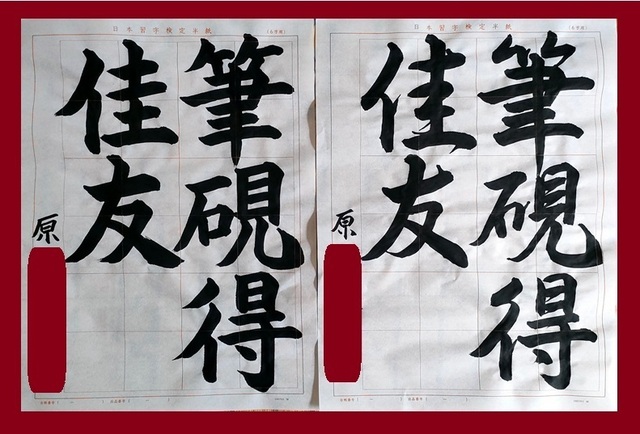 日本習字検定半紙
筆硯得
佳友
原
日本習字検定半紙
筆硯得
佳友
原